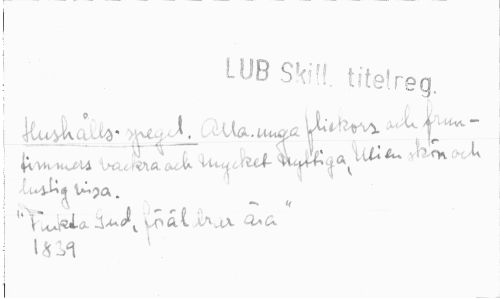 LUB Skill. titelreg.
Hushålls-spegel. Alla unga flickors och frun-
timmers vackra och mycket nyttiga, Uti en skön och
lustig visa.
"Gud, för äl är er ära"
1839